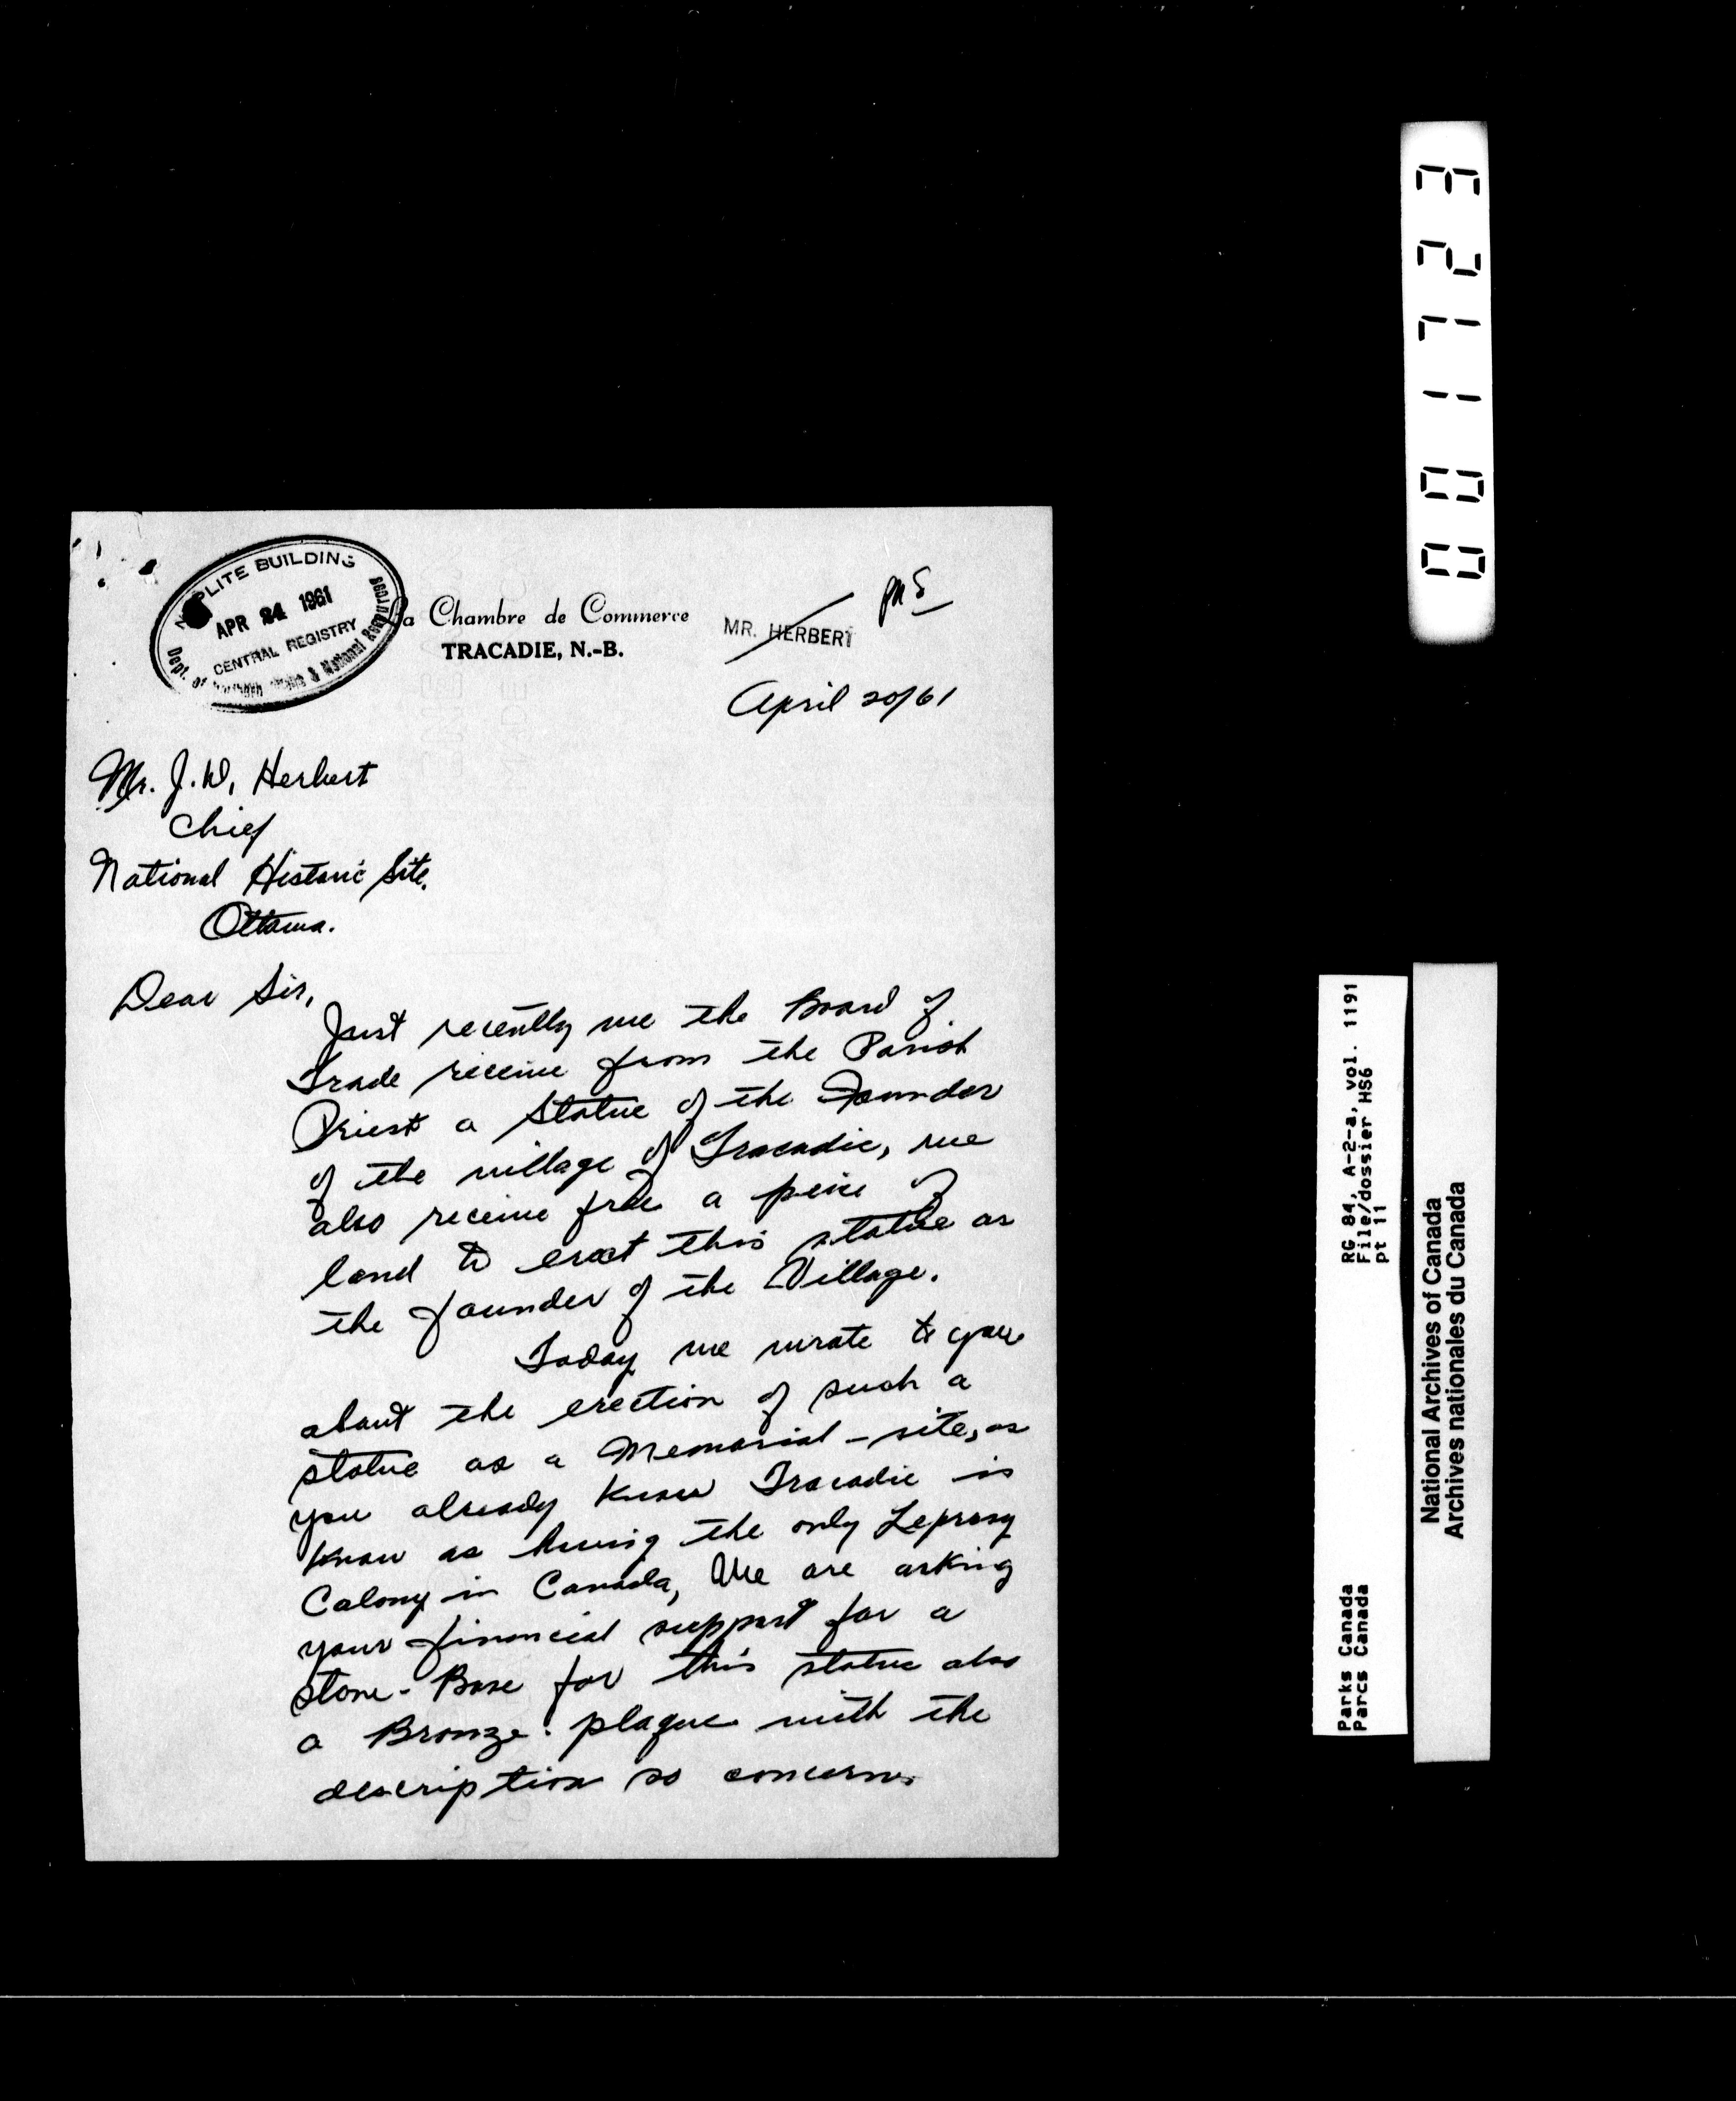 NORLITE BUILDING
APR 24 1961
CENTRAL REGISTRY
Dept. of Northern Affairs & National Resources
La Chambre de Commerce
TRACADIE, N.-B.
MR. HERBERT
April 20/61
Mr. J.W. Herbert
Chief
National Historic Site.
Ottawa.
Dear Sir,
Just recently we the Board of
Trade receive from the Parish
Priest a Statue of the Founder
of the village of Tracadie, we
also receive free a peice of
land to erect this statue as
the founder of the Village.
Today we wrote to you
about the erection of such a
statue as a Memorial - site, as
you already know Tracadie is
know as having the only Leprosy
Colony in Canada, We are asking
your financial support for a
stone - Base for this statue also
a Bronze - plaque with the
description so concern.
3 2 7 1 0 0
RG 84, A-2-a, vol. 1191
File/dossier HS6
pt 11
Parks Canada
Parcs Canada
National Archives of Canada
Archives nationales du Canada